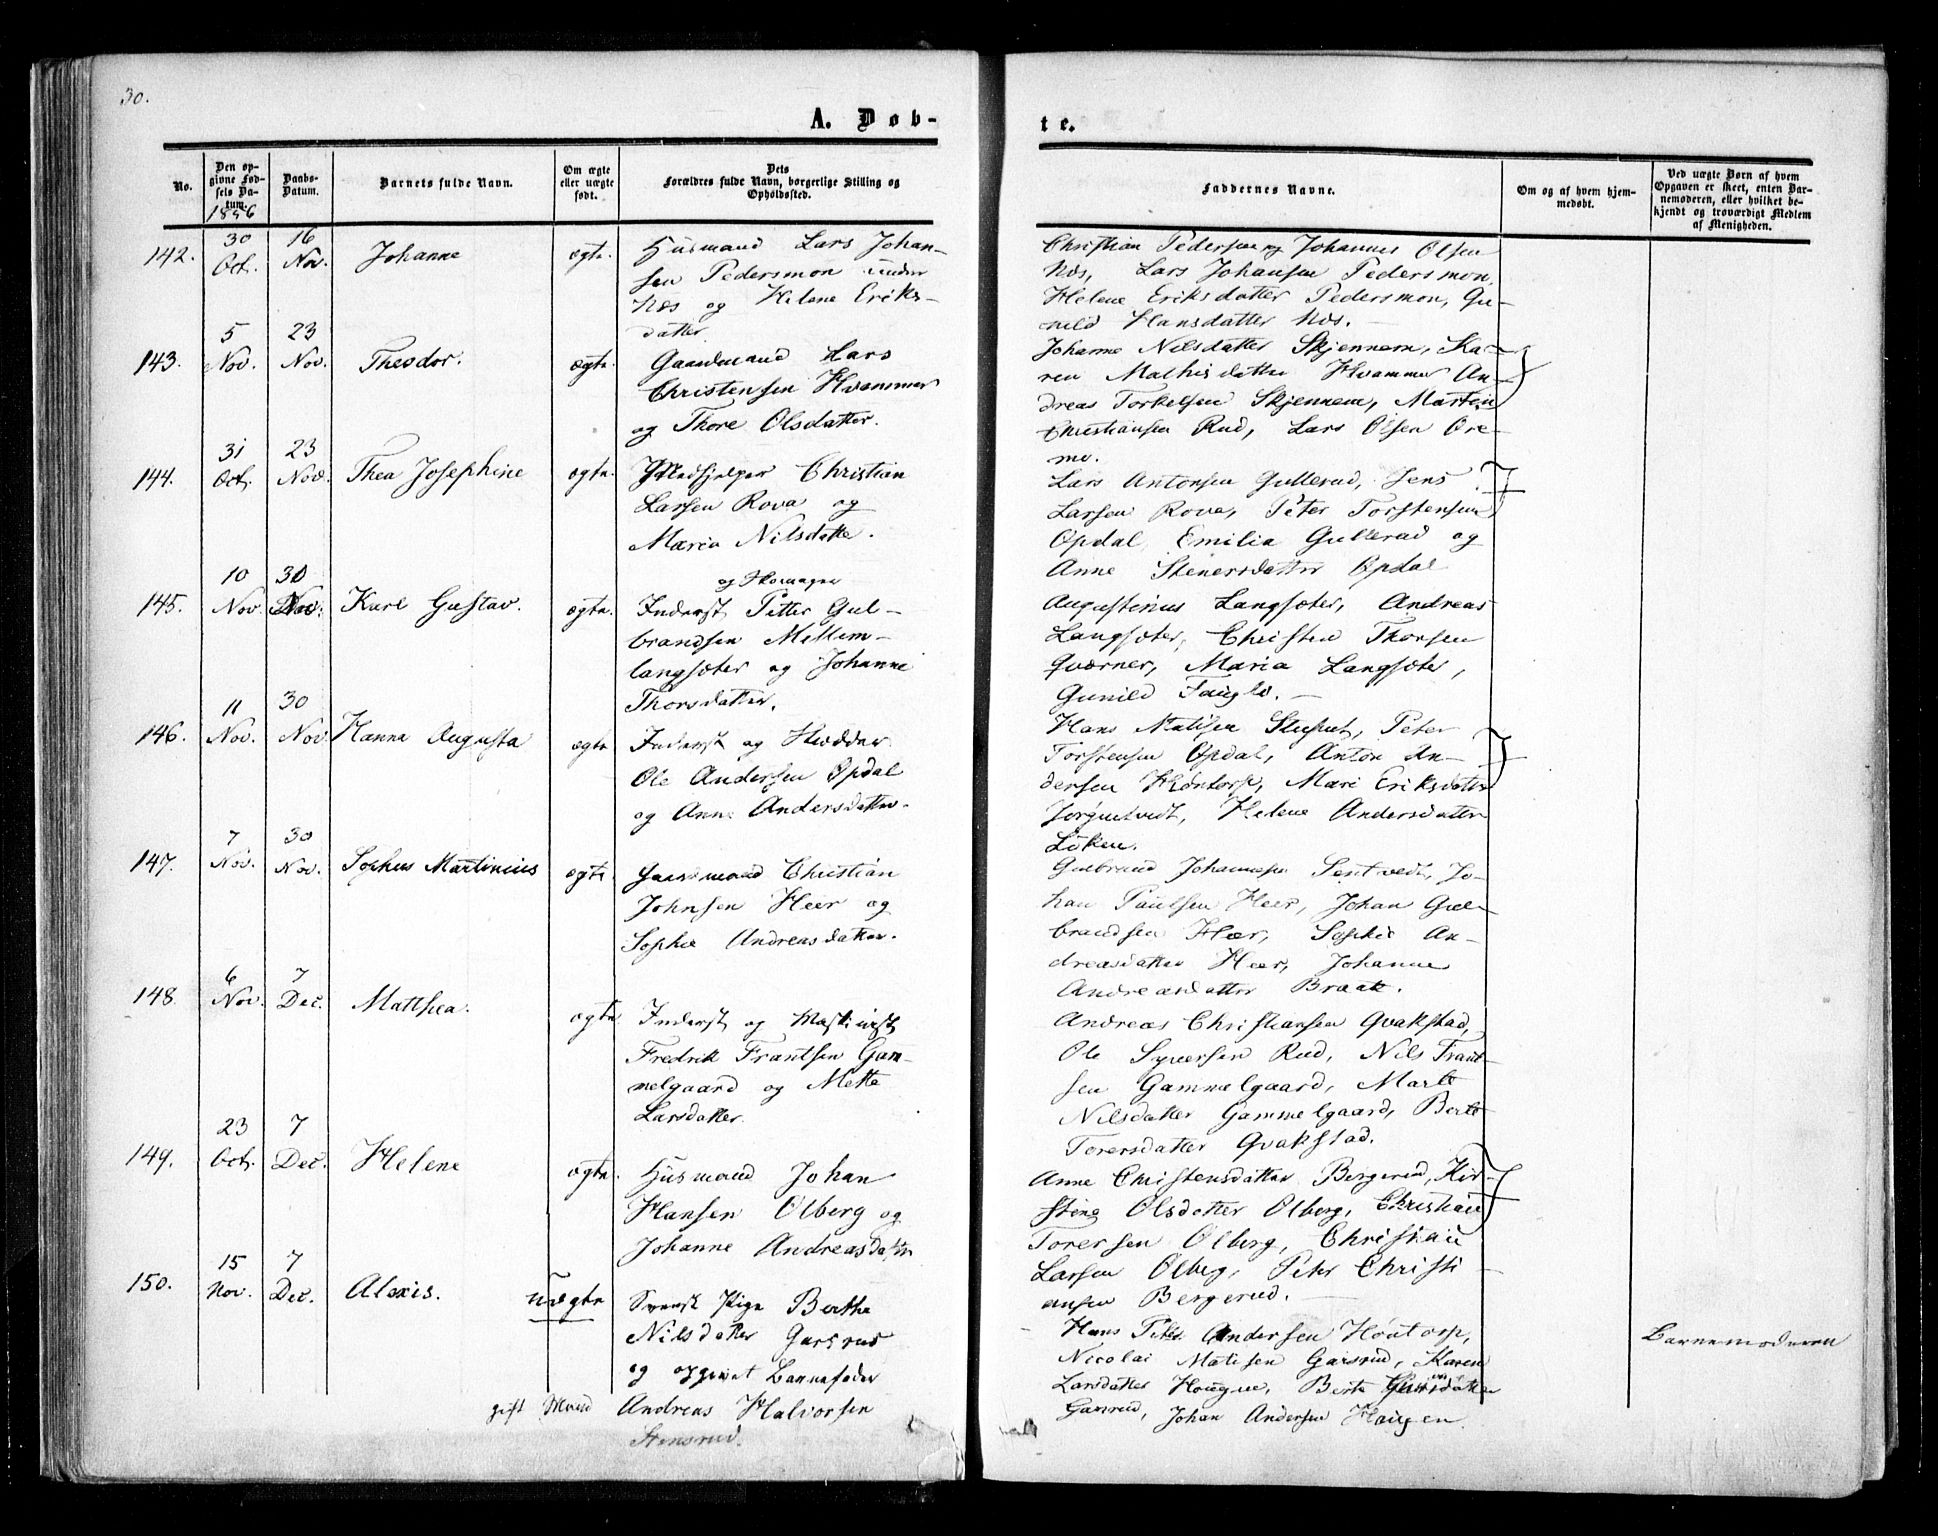 30.
A. Døb-
te.
No.
Den op-
givne Fød-
sels Da-
tum.
1856
Daabs-
Datum.
Barnets fulde Navn.
Om ægte
eller uægte
født.
Dets
Forældres fulde Navn, borgerlige Stilling og
Opholdssted.
Faddernes Navne.
Om og af hvem hjem-
medøbt.
Ved uægte Børn af hvem
Opgaven er skeet, enten Bar-
nemoderen, eller hvilket be-
kjendt og troværdigt Medlem
af Menigheden.
142.
30
Oct.
16
Nov.
Johanne
ægte.
Husmand Lars Johan-
sen Pedersmon under
Næs og Helene Eriks-
datter.
Christian Pedersen og Johannes Olsen
Næs, Lars Johansen Pedersmon,
Helene Eriksdatter Pedersmon, Gu-
nild Hansdatter Næs.
143.
5
Nov.
23
Nov.
Theodor.
ægte.
Gaardmand Lars
Christensen Hvammer
og Thore Olsdatter.
Johanne Nilsdatter Skjennem, Ka-
ren Mathisdatter Hvammer An-
dreas Torkelsen Skjennem, Martin
Christiansen Rud, Lars Olsen Ore-
mo.
144.
31
Oct.
23
Nov.
Thea Josephine
ægte.
Medhjelper Christian
Larsen Rova og
Maria Nilsdatte.
Lars Antonsen Gullerud, Jens
Larsen Rova, Peter Torstensen
Opdal, Emilia Gullerud og
Anne Stenersdatter Opdal
145.
10
Nov.
30
Nov.
Karl Gustav.
ægte.
og Skomager
Inderst Petter Gul-
brandsen Mellem-
langsæter og Johanne
Thorsdatter.
Augustinus Langsæter, Andreas
Langsæter, Christen Thorsen
Qværner, Maria Langsæter,
Gunild Fauglo.
146.
11
Nov.
30
Nov.
Hanna Augusta
ægte
Inderst og Skrædder
Ole Andersen Opdal
og Anne Andersdatter.
Hans Matisen Stuput, Peter
Torstensen Opdal, Anton An-
dersen Høntorp, Mari Eriksdatter
Helene Andersdatter
Løken.
147.
7
Nov.
30
Nov.
Sophus Martinius
ægte.
Gaardmand Christian
Johnsen Heer og
Sophie Andreasdatter.
Gulbrand Johannesen Sentvedt, Jo-
han Paulsen Heer, Johan Gul-
brandsen Hær, Sophie An-
dreasdatter Heer, Johanne
Andreasdatter Braate.
148
6
Nov.
7
Dec.
Matthea.
ægte
Inderst og Maskinist
Fredrik Frantsen Gam-
melgaard og Mette
Larsdatter.
Andreas Christiansen Qvakstad,
Ole Syversen Rud, Nils Frant-
sen Gammelgaard, Marte
Nilsdatter Gammelgaard, Berte
Torersdatter Qvakstad.
149.
23
Oct.
7
Dec.
Helene
ægte.
Husmand Johan
Hansen Olberg og
Johanne Andreasdatter
Anne Christensdatter Bergerud, Kir-
stine Olsdatter Olberg, Christian
Torersen Olberg, Christian
Larsen Olberg, Peter Christi-
ansen Bergerud.
150.
15
Nov.
7
Dec.
Alexis.
uægte
Svensk Pige Berthe
Nilsdatter Garsrud
og opgivet Barnefader
gift Mand Andreas Halvorsen
Stensrud.
Hans Peter Andersen Høntorp,
Nicolai Matisen Garsrud, Karen
Larsdatter Hougne, Berte
Garsrud, Johan Andersen Haugen
Barnemoderen